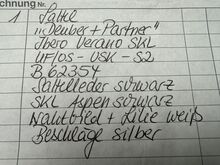 chnung Nr.
1 Sattel
„Deuber + Partner"
Jbero Verano SKL
UF/OS - USK - S2
B 62354
Sattelleder schwarz
SKL Aspen schwarz
Nahtbild + Lilie weiß
Beschläge silber